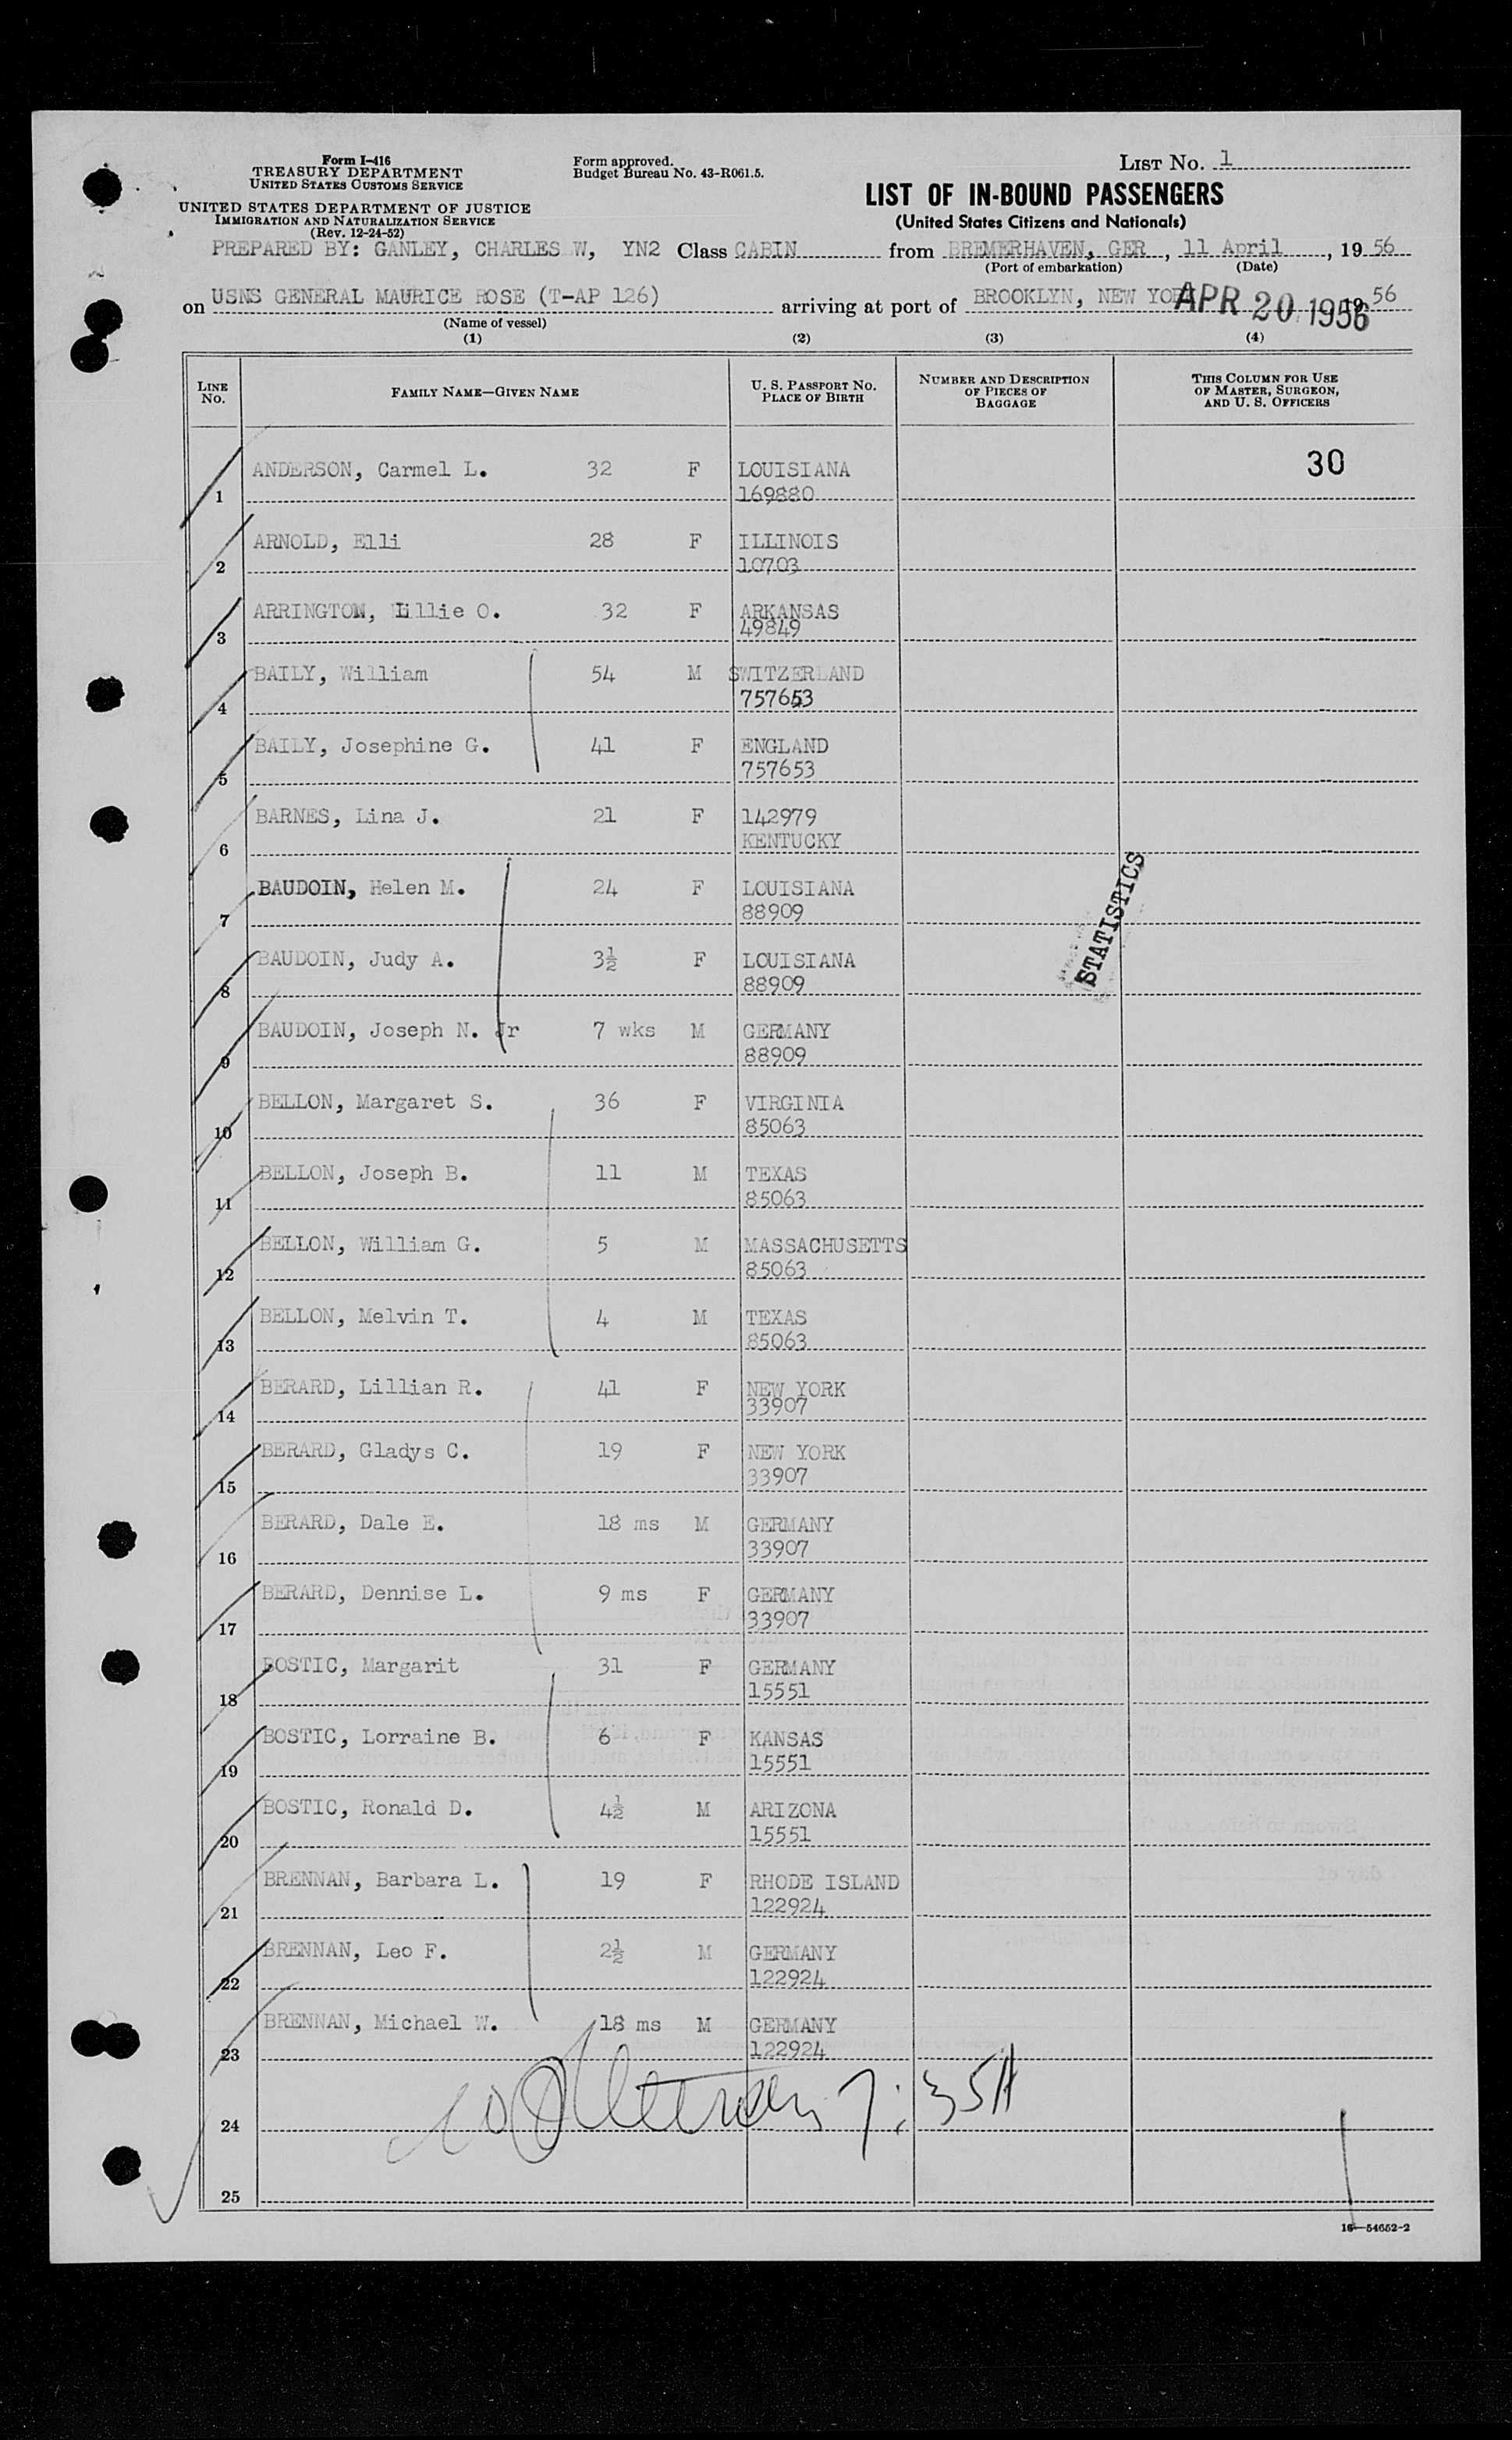 Form I-416
TREASURY DEPARTMENT
UNITED STATES CUSTOMS SERVICE
UNITED STATES DEPARTMENT OF JUSTICE
IMMIGRATION AND NATURALIZATION SERVICE
(Rev. 12-24-52)
Form approved.
Budget Bureau No. 43-R061.5.
LIST No. 1
LIST OF IN-BOUND PASSENGERS
(United States Citizens and Nationals)
PREPARED BY: GANLEY, CHARLES W, YN2 Class CABIN from BREMERHAVEN, GER, 11 April, 1956
(Port of embarkation) (Date)
on USNS GENERAL MAURICE ROSE (T-AP 126) arriving at port of BROOKLYN, NEW YORK APR 20 1956 56
(Name of vessel)
(1) (2) (3) (4)
LINE No. FAMILY NAME—GIVEN NAME U. S. PASSPORT No. PLACE OF BIRTH NUMBER AND DESCRIPTION OF PIECES OF BAGGAGE THIS COLUMN FOR USE OF MASTER, SURGEON, AND U. S. OFFICERS
30
ANDERSON, Carmel L. 32 F LOUISIANA
1 169880
ARNOLD, Elli 28 F ILLINOIS
2 10703
ARRINGTON, Lillie O. 32 F ARKANSAS
3 49849
BAILY, William 54 M SWITZERLAND
4 757653
BAILY, Josephine G. 41 F ENGLAND
5 757653
BARNES, Lina J. 21 F 142979
6 KENTUCKY
BAUDOIN, Helen M. 24 F LOUISIANA
7 88909
STATISTICS
BAUDOIN, Judy A. 3½ F LOUISIANA
8 88909
BAUDOIN, Joseph N. Jr 7 wks M GERMANY
9 88909
BELLON, Margaret S. 36 F VIRGINIA
10 85063
BELLON, Joseph B. 11 M TEXAS
11 85063
BELLON, William G. 5 M MASSACHUSETTS
12 85063
BELLON, Melvin T. 4 M TEXAS
13 85063
BERARD, Lillian R. 41 F NEW YORK
14 33907
BERARD, Gladys C. 19 F NEW YORK
15 33907
BERARD, Dale E. 18 ms M GERMANY
16 33907
BERARD, Dennise L. 9 ms F GERMANY
17 33907
BOSTIC, Margarit 31 F GERMANY
18 15551
BOSTIC, Lorraine B. 6 F KANSAS
19 15551
BOSTIC, Ronald D. 4½ M ARIZONA
20 15551
BRENNAN, Barbara L. 19 F RHODE ISLAND
21 122924
BRENNAN, Leo F. 2½ M GERMANY
22 122924
BRENNAN, Michael W. 18 ms M GERMANY
23 122924
24
25
16—54652-2